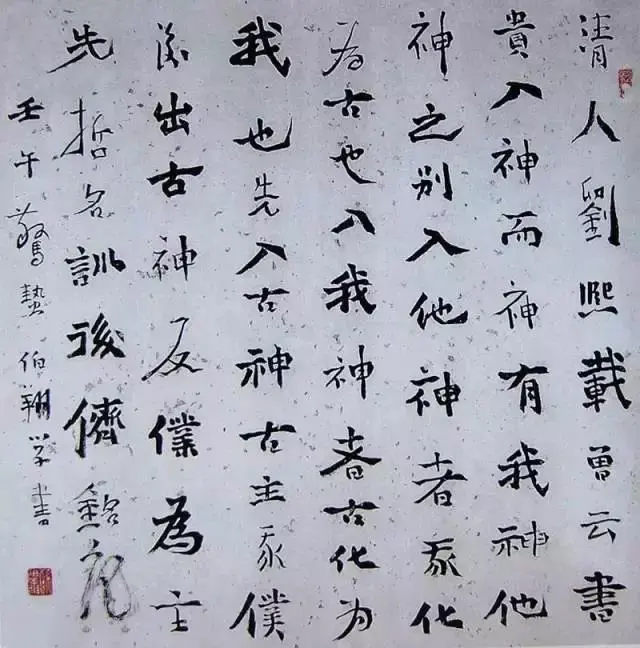 清人劉熙載曾云書
貴入神而神有我神他
神之别入他神者我化
为古也入我神者古化为
我也先入古神古主我僕
後出古神反僕為主
先哲名訓後儕
壬午驚蟄伯翔学書